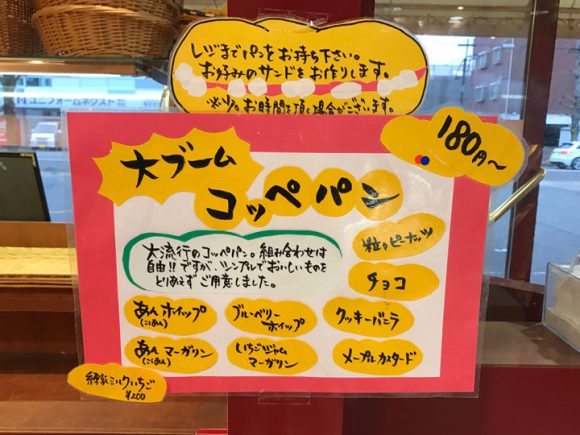 レジまでパンをお持ち下さい。
お好みのサンドをお作りします。
※少々お時間を頂く場合がございます。
180円〜
大ブーム
コッペパン
大流行のコッペパン。組み合わせは
自由!!ですが、シンプルでおいしいものを
とりあえずご用意しました。
粒々ピーナッツ
チョコ
あんホイップ
(こしあん)
ブルーベリー
ホイップ
クッキーバニラ
あんマーガリン
(こしあん)
いちごジャム
マーガリン
メープルカスタード
練乳ミルクいちご
¥200
ユニフォームネクスト